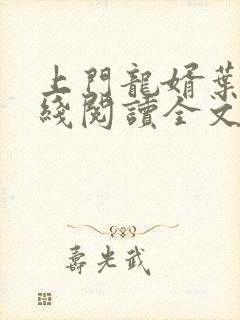 上門龍婿葉
綫閱讀全文
壽光武